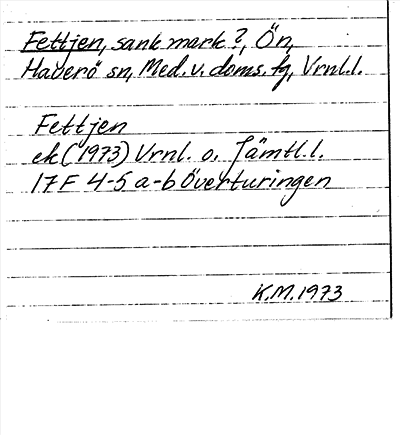 Fettjen, sank mark?, Ön,
Haverö sn, Med. v. doms. fg, Vrnl.l.
Fettjen
ek (1973) Vrnl. o. Jämtl.l.
17F 4-5 a-b Överturingen
K.M. 1973